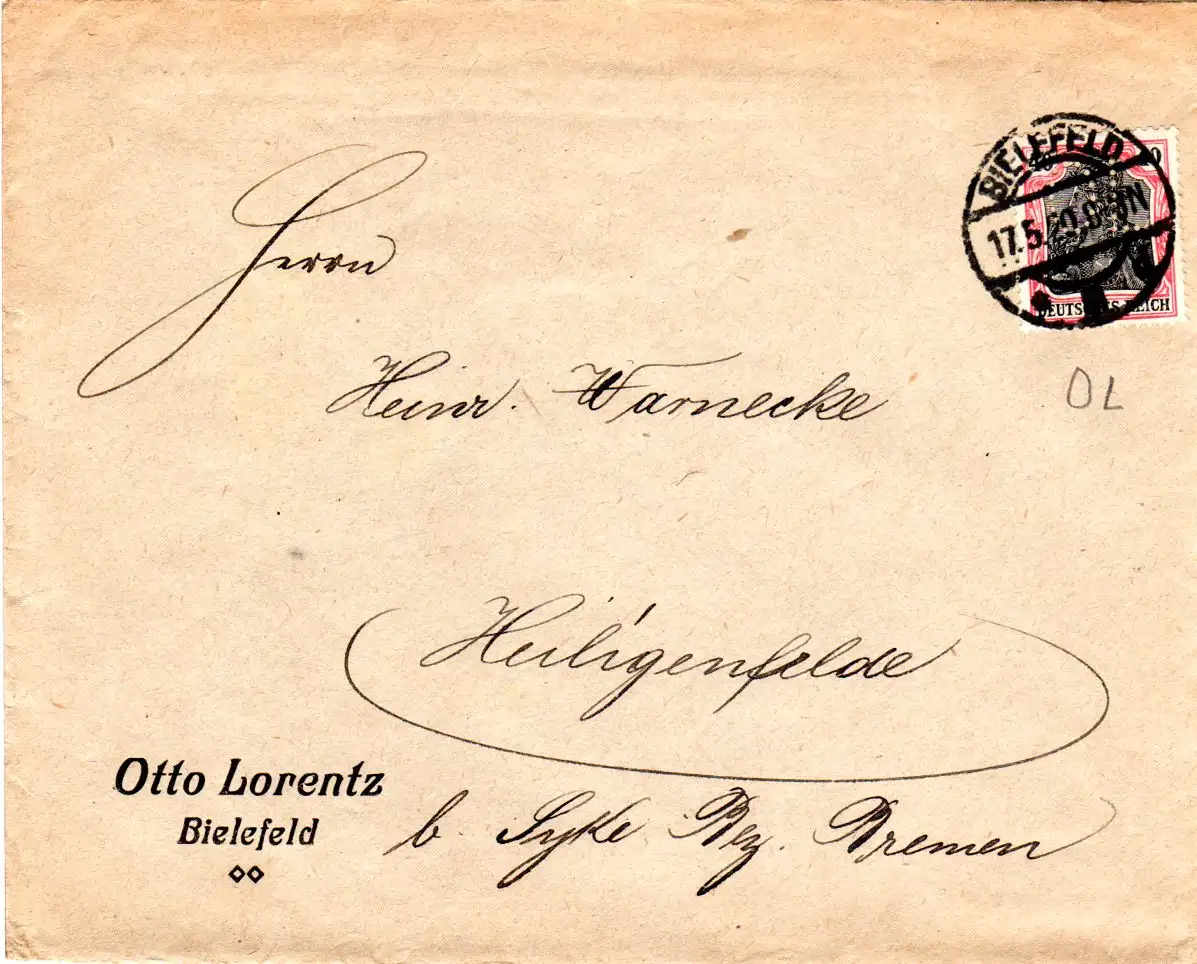 BIELEFELD
17.5.
DEUTSCHES REICH
OL
Herrn
Heinr. Warnecke
Heiligenfelde
b. Syke Bez. Bremen
Otto Lorentz
Bielefeld